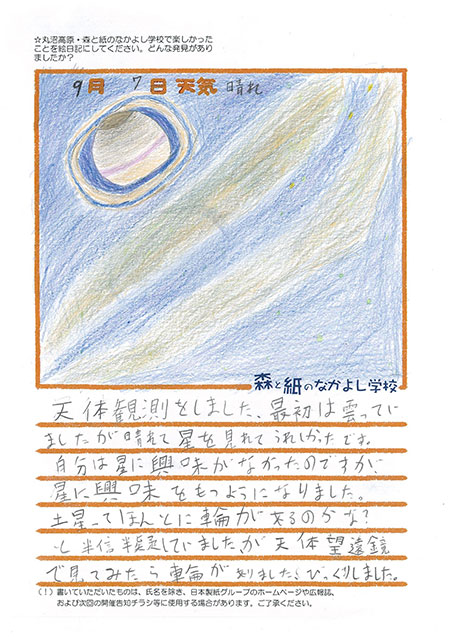 ☆丸沼高原・森と紙のなかよし学校で楽しかった
ことを絵日記にしてください。どんな発見があり
ましたか?
9月 7日 天気 晴れ
森と紙のなかよし学校
天体観測をしました、最初は雲ってい
ましたが晴れて星を見れてうれしかったです。
自分は星に興味がなかったのですが、
星に興味をもつようになりました。
土星ってほんとに輪があるのかな?
と半信半疑していましたが天体望遠鏡
で見てみたら輪がありましたびっくりしました。
(!)書いていただいたものは、氏名を除き、日本製紙グループのホームページや広報誌、
および次回の開催告知チラシ等に使用する場合があります。ご了承ください。